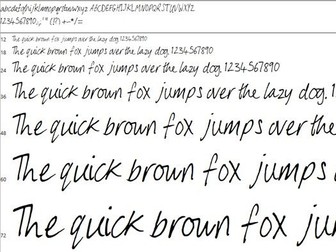 abcdefghijklmnopqrstuvwxyz ABCDEFGHIJKLMNOPQRSTUVWXYZ
1234567890.:,;'" (!?) +-*/=
12 The quick brown fox jumps over the lazy dog. 1234567890
18 The quick brown fox jumps over the lazy dog. 1234567890
24 The quick brown fox jumps over the lazy dog. 1234567890
36 The quick brown fox jumps over the lazy dog. 1234
48 The quick brown fox jumps over the
60 The quick brown fox jumps
72 The quick brown fox